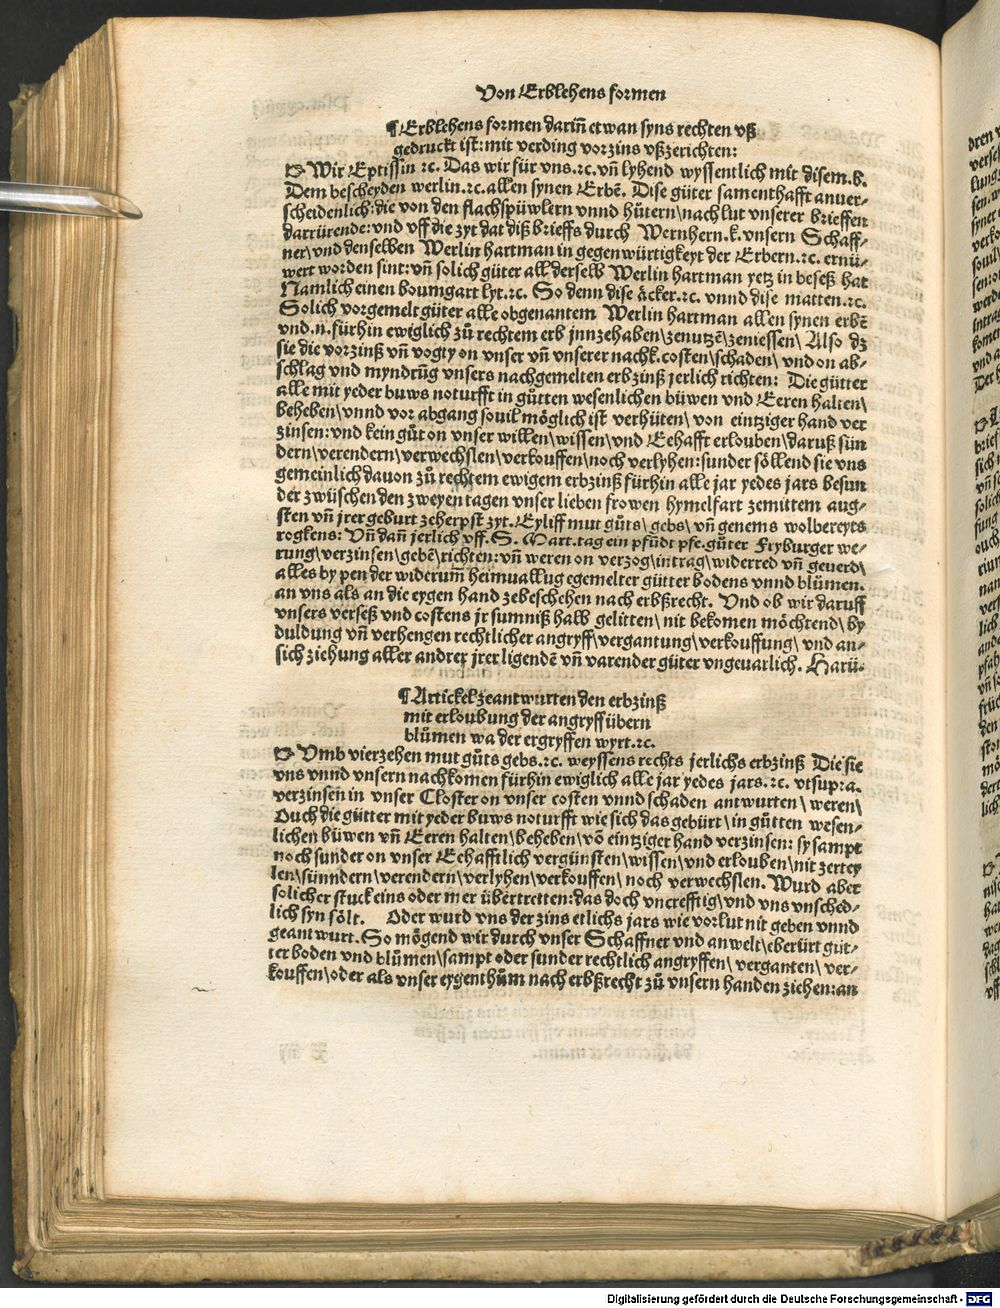 Von Erblehens formen
¶ Erblehens formen dariñ etwan syns rechten vß
gedruckt ist: mit verding vorzins vßzerichten:
Wir Eptissin ⁊c. Das wir für vns.⁊c. vñ lyhend wyssentlich mit disem.b.
Dem bescheyden werlin.⁊c. allen synen Erbē. Dise güter samenthafft anuer-
scheidenlich: die von den flachspüwlern vnnd hütern\ nach lut vnserer brieffen
darrürende: vnd vff die zyt dat diß brieffs durch Wernhern.k. vnsern Schaff-
ner\ vnd denselben Werlin hartman in gegenwürtigkeyt der Erbern.⁊c. ernü-
wert worden sint: vñ solich güter all derselb Werlin hartman yetz in beseß hat
Namlich einen boumgart lyt.⁊c. So denn dise äcker.⁊c. vnnd dise matten.⁊c.
Solich vorgemelt güter alle obgenantem Werlin hartman allen synen erbē
vnd.n. fürhin ewiglich zů rechtem erb jnnzehaben\ zenutzē\ zeniessen\ Also dz
sie die vorzinß vñ vogty on vnser vñ vnserer nachk. costen\ schaden\ vnd on ab-
schlag vnd myndrūg vnsers nachgemelten erbzinß jerlich richten: Die gütter
alle mit yeder buws noturfft in gůtten wesenlichen büwen vnd Eeren halten\
beheben\ vnnd vor abgang souil möglich ist verhüten\ von eintziger hand ver
zinsen: vnd kein gůt on vnser willen\ wissen\ vnd Eehafft erlouben\ daruß sün
dern\ verendern\ verwechslen\ verkouffen\ noch verlyhen: sunder söllend sie vns
gemeinlich dauon zů rechtem ewigem erbzinß fürhin alle jar yedes jars besun
der zwüschen den zweyen tagen vnser lieben frowen hymelfart zemittem aug-
sten vñ jrer geburt zeherpst zyt. Eyliff mut gůts\ gebs\ vñ genems wolbereyts
rogkens: Vñ dañ jerlich vff. S. Mart. tag ein pfūdt pfe. gůter Fryburger we-
rung\ verzinsen\ gebē\ richten: vñ weren on verzog\ intrag\ widerred vñ geuerd\
alles by pen der widerum̄ heimuallug egemelter gütter bodens vnnd blůmen.
an vns als an die eygen hand zebeschehen nach erbßrecht. Vnd ob wir daruff
vnsers verseß vnd costens jr sumniß halb gelitten\ nit bekomen möchtend\ by
duldung vñ verhengen rechtlicher angryff\ vergantung\ verkouffung\ vnd an-
sich ziehung aller andrer jrer ligendē vñ varender güter vngeuarlich. Harü.
¶ Artickel zeantwurten den erbzinß
mit erloubung der angryff übern
blůmen wa der ergryffen wyrt.⁊c.
Vmb vierzehen mut gůts gebs.⁊c. weyssens rechts jerlichs erbzinß Die sie
vns vnnd vnsern nachkomen fürhin ewiglich alle jar yedes jars.⁊c. vtsupra.
verzinsen in vnser Closter on vnser costen vnnd schaden antwurten\ weren\
Ouch die gütter mit yeder buws noturfft wie sich das gebürt\ in gůtten wesen-
lichen büwen vñ Eeren halten\ beheben\ vō eintziger hand verzinsen: sy sampt
noch sunder on vnser Eehafftlich vergünsten\ wissen\ vnd erlouben\ nit zertey
len\ sünndern\ verendern\ verlyhen\ verkouffen\ noch verwechslen. Wurd aber
solicher stuck eins oder mer übertretten: das doch vncrefftig\ vnd vns vnsched-
lich syn sölt. Oder wurd vns der zins etlichs jars wie vorlut nit geben vnnd
geantwurt. So mögend wir durch vnser Schaffner vnd anwelt\ eberürt güt-
ter boden vnd blůmen\ sampt oder sunder rechtlich angryffen\ verganten\ ver-
kouffen\ oder als vnser eygenthům nach erbßrecht zů vnsern handen ziehen: an
Digitalisierung gefördert durch die Deutsche Forschungsgemeinschaft - DFG